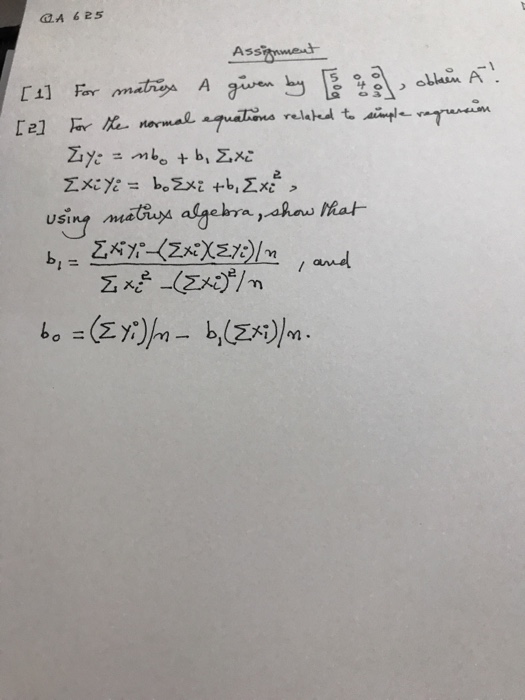 Q.A 625
Assignment
[1] For matrix A given by [5 0 0
0 4 0
0 0 3], obtain A⁻¹.
[2] For the normal equations related to simple regression
Σyi = nb₀ + b₁ Σxi
Σxiyi = b₀Σxi + b₁Σxi²,
using matrix algebra, show that
b₁ = Σxiyi-(Σxi)(Σyi)/n / Σxi² -(Σxi)²/n , and
b₀ = (Σyi)/n - b₁(Σxi)/n.